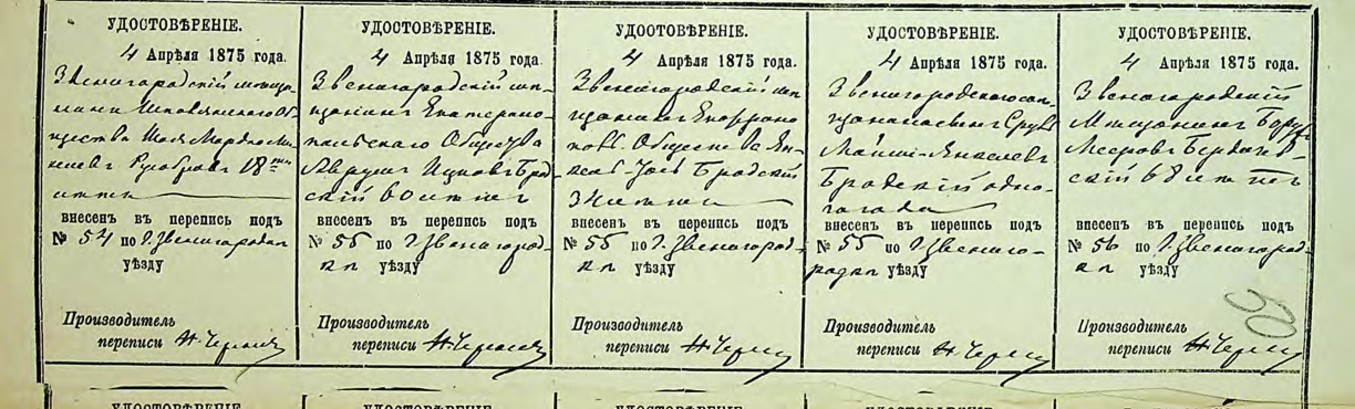 УДОСТОВѢРЕНІЕ.
4 Апрѣля 1875 года.
Звенигородскій мѣща-
нинъ Шполянскаго Об-
щества Шая Мордко
18ти
лѣтъ
внесенъ въ перепись подъ
№ 54 по г. Звенигородкѣ
уѣзду
Производитель
переписи Н.
УДОСТОВѢРЕНІЕ.
4 Апрѣля 1875 года.
Звенигородскій мѣ-
щанинъ Екатерино-
польскаго Общества
Аврумъ Ицковъ Брод-
скій 60 лѣтъ
внесенъ въ перепись подъ
№ 55 по г. Звенигород-
кѣ уѣзду
Производитель
переписи Н.
УДОСТОВѢРЕНІЕ.
4 Апрѣля 1875 года.
Звенигородскій мѣ
щанинъ
Общества Ян-
кель-Іось Бродскій
лѣтъ
внесенъ въ перепись подъ
№ 55 по г. Звенигород-
кѣ уѣзду
Производитель
переписи Н.
УДОСТОВѢРЕНІЕ.
4 Апрѣля 1875 года.
Звенигородскаго
Сруль
Янкелевъ
Бродскій одно-
го года
внесенъ въ перепись подъ
№ 55 по г. Звениго-
родкѣ уѣзду
Производитель
переписи Н.
УДОСТОВѢРЕНІЕ.
4 Апрѣля 1875 года.
Звенигородскій
Мѣщанинъ Борухъ
Мееровъ Бердичев-
скій лѣтъ
внесенъ въ перепись подъ
№ 56 по г. Звенигород-
кѣ уѣзду
Производитель
переписи Н.
50
УДОСТОВѢРЕНІЕ.
УДОСТОВѢРЕНІЕ.
УДОСТОВѢРЕНІЕ.
УДОСТОВѢРЕНІЕ.